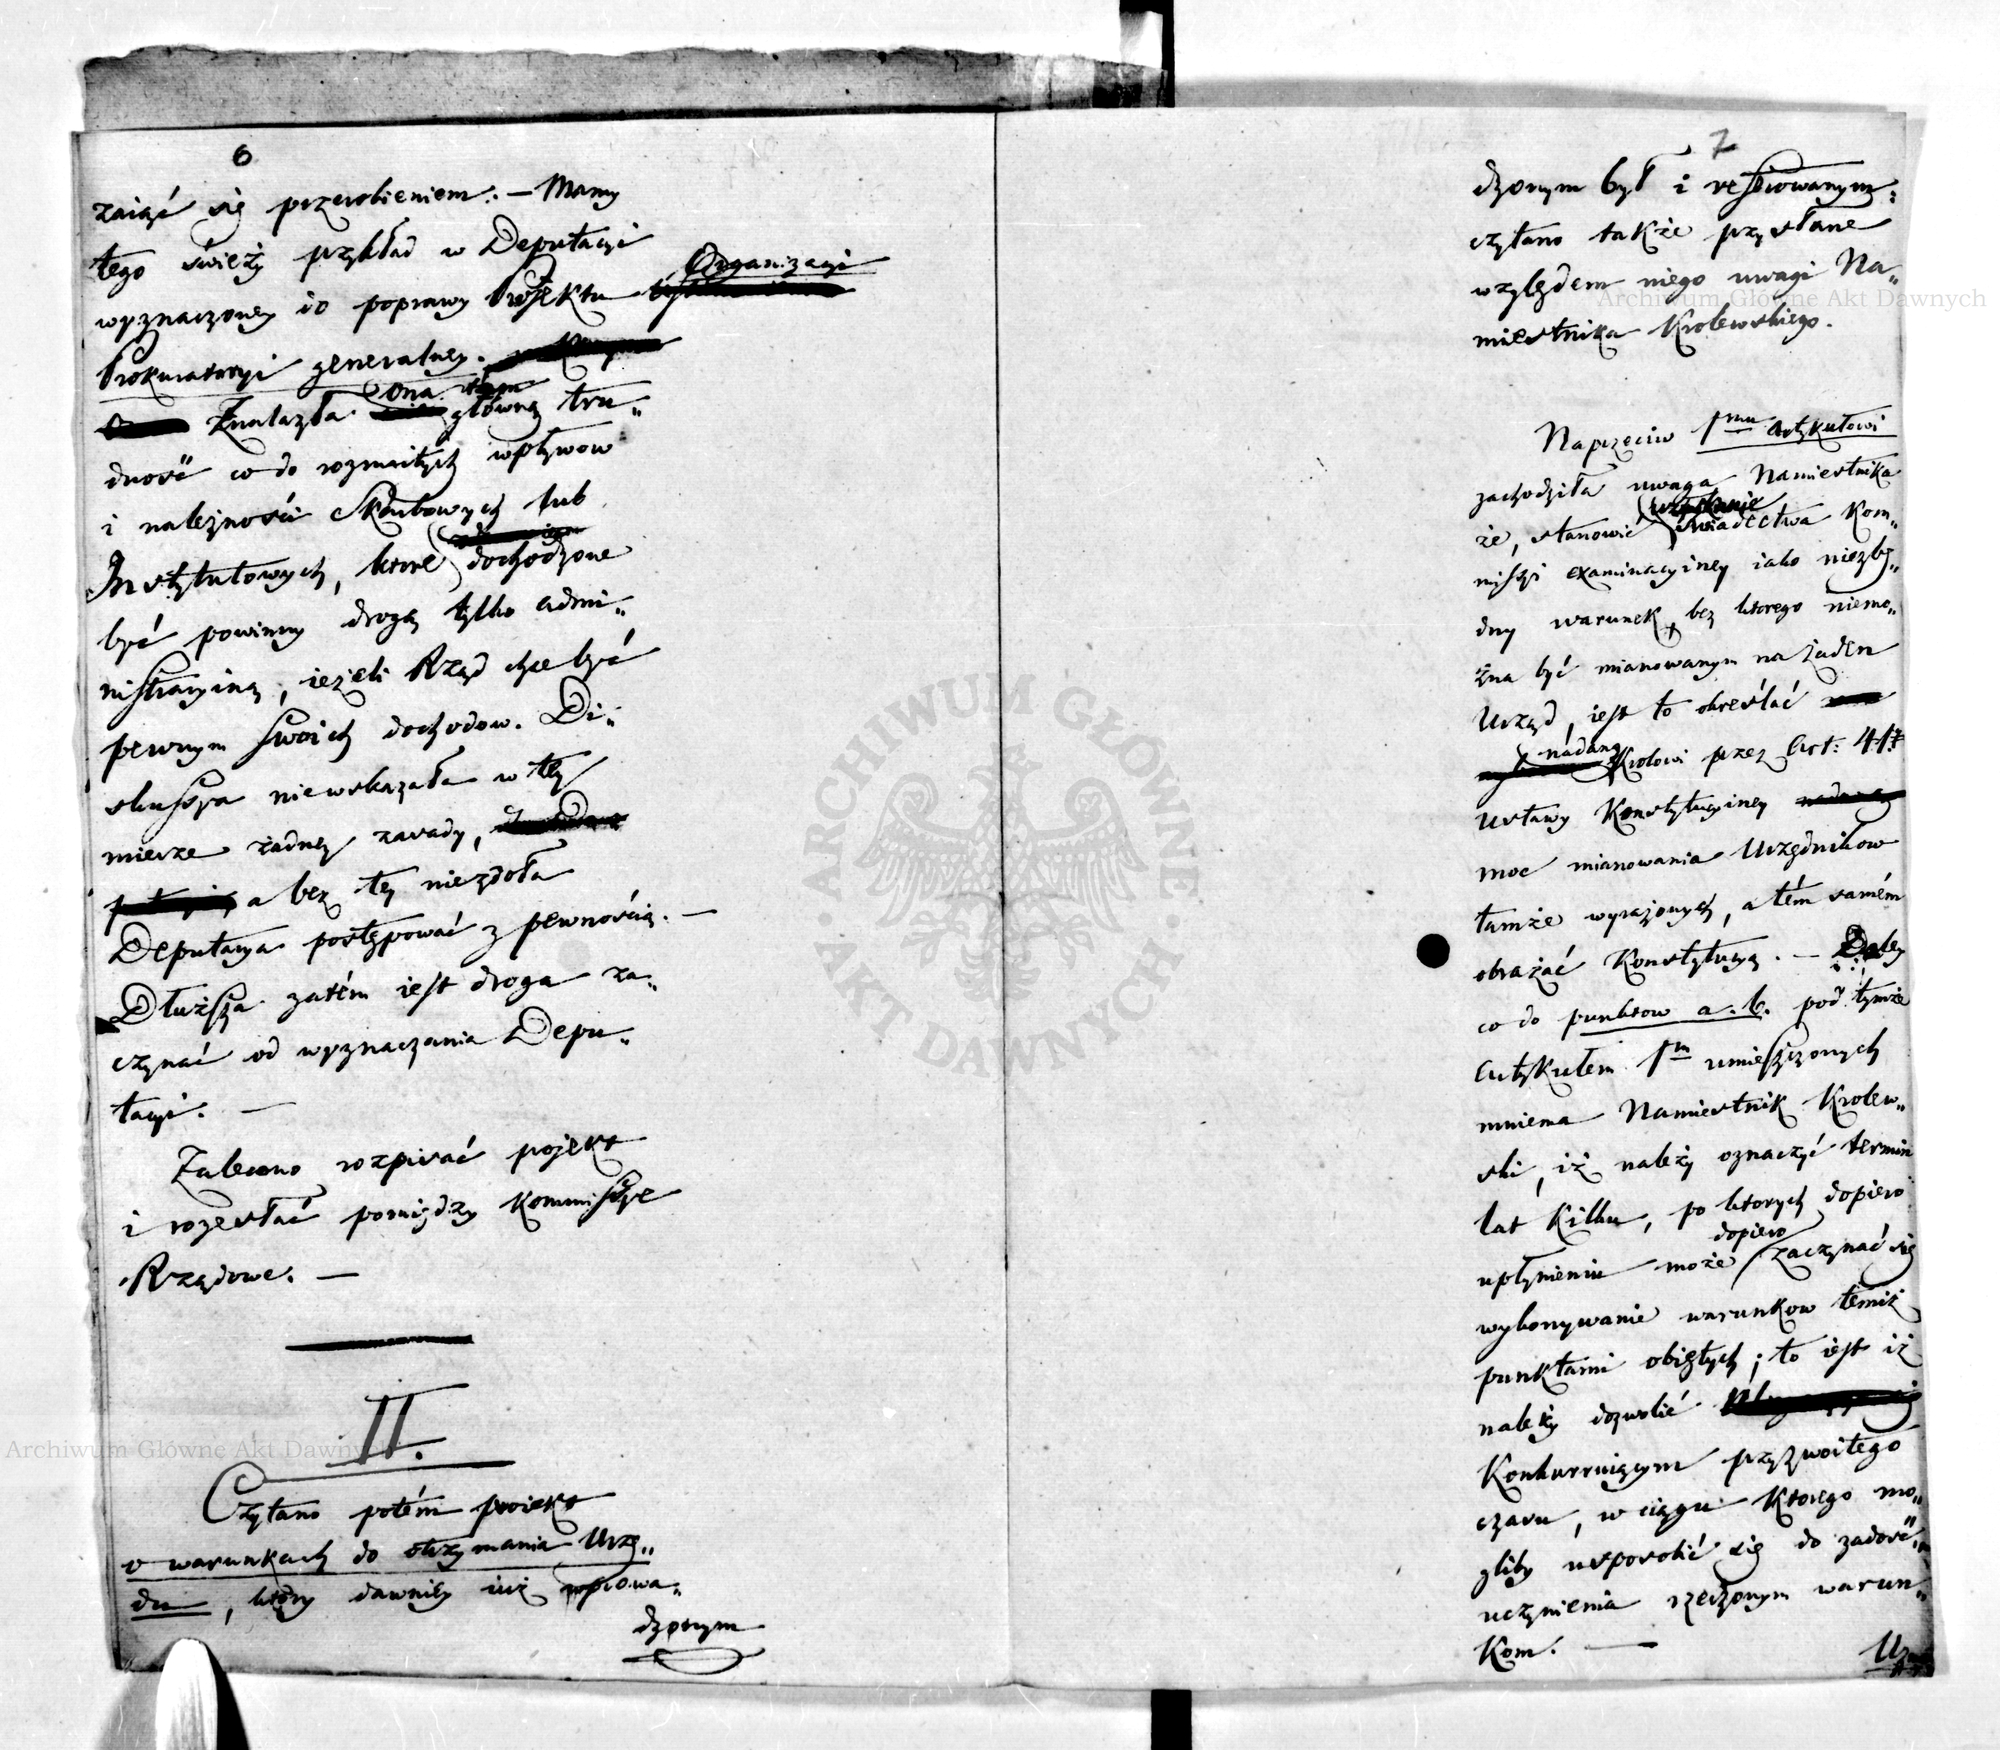 6
zaiąć się przerobieniem. — Mamy
tego świeży przykład w Deputacyi
wyznaczoney do poprawy Projektu Organizacyi
Prokuratoryi generalney.
Znalazła ona tam główną tru„
dność co do rozmaitych wpływow
i należności Skarbowych lub
Instytutowych, ktore dochodzone
być powinny drogą tylko admi„
nistracyiną, ieżeli Rząd chce być
pewnym swoich dochodow. Di„
skussya niewskazała w tey
mierze żadney zasady,
a bez tey niezdoła
Deputacya postępować z pewnością. —
Dłuższa zatém iest droga za„
czynać od wyznaczania Depu„
tacyi. —
Zalecono rozpisać projekt
i rozesłać pomiędzy Kommissye
Rządowe. —
II.
Czytano potém proiekt
o warunkach do otrzymania Urzę„
du, ktory dawniéy iuż wprowa„
dzonym
7
dzonym był i ressowanym:
czytano także przysłane
względem niego uwagi Na„
miestnika Krolewskiego.
Naprzeciw 1mu Artykułowi
zachodziła uwaga Namiestnika
że, stanowić uzyskanie świadectwa Kom„
missyi examinacyiney iako niezbę„
dny warunek, bez ktorego niemo„
żna być mianowanym na żaden
Urząd, iest to określać
nadaną Krolowi przez Art: 41.
Ustawy Konstytucyiney nadaną
moc mianowania Urzędnikow
tamże wyrażonych, a tém samém
obrażać Konstytucyą. — Daley
co do punktow a. b. pod tymże
Artykułem 1m umieszczonych
mniema Namiestnik Krolew„
ski, iż należy oznaczyć termin
lat kilku, po ktorych dopiero
upłynieniu może dopiero zaczynać się
wykonywanie warunkow temiż
punktami obiętych; to iest iż
należy dozwolić
Konkurruiącym przyzwoitego
czasu, w ciągu ktorego mo„
gliby usposobić się do zadosć„
uczynienia rzeczonym warun„
kom. —
Archiwum Główne Akt Dawnych
Archiwum Główne Akt Dawnych
ARCHIWUM GŁÓWNE · AKT DAWNYCH ·